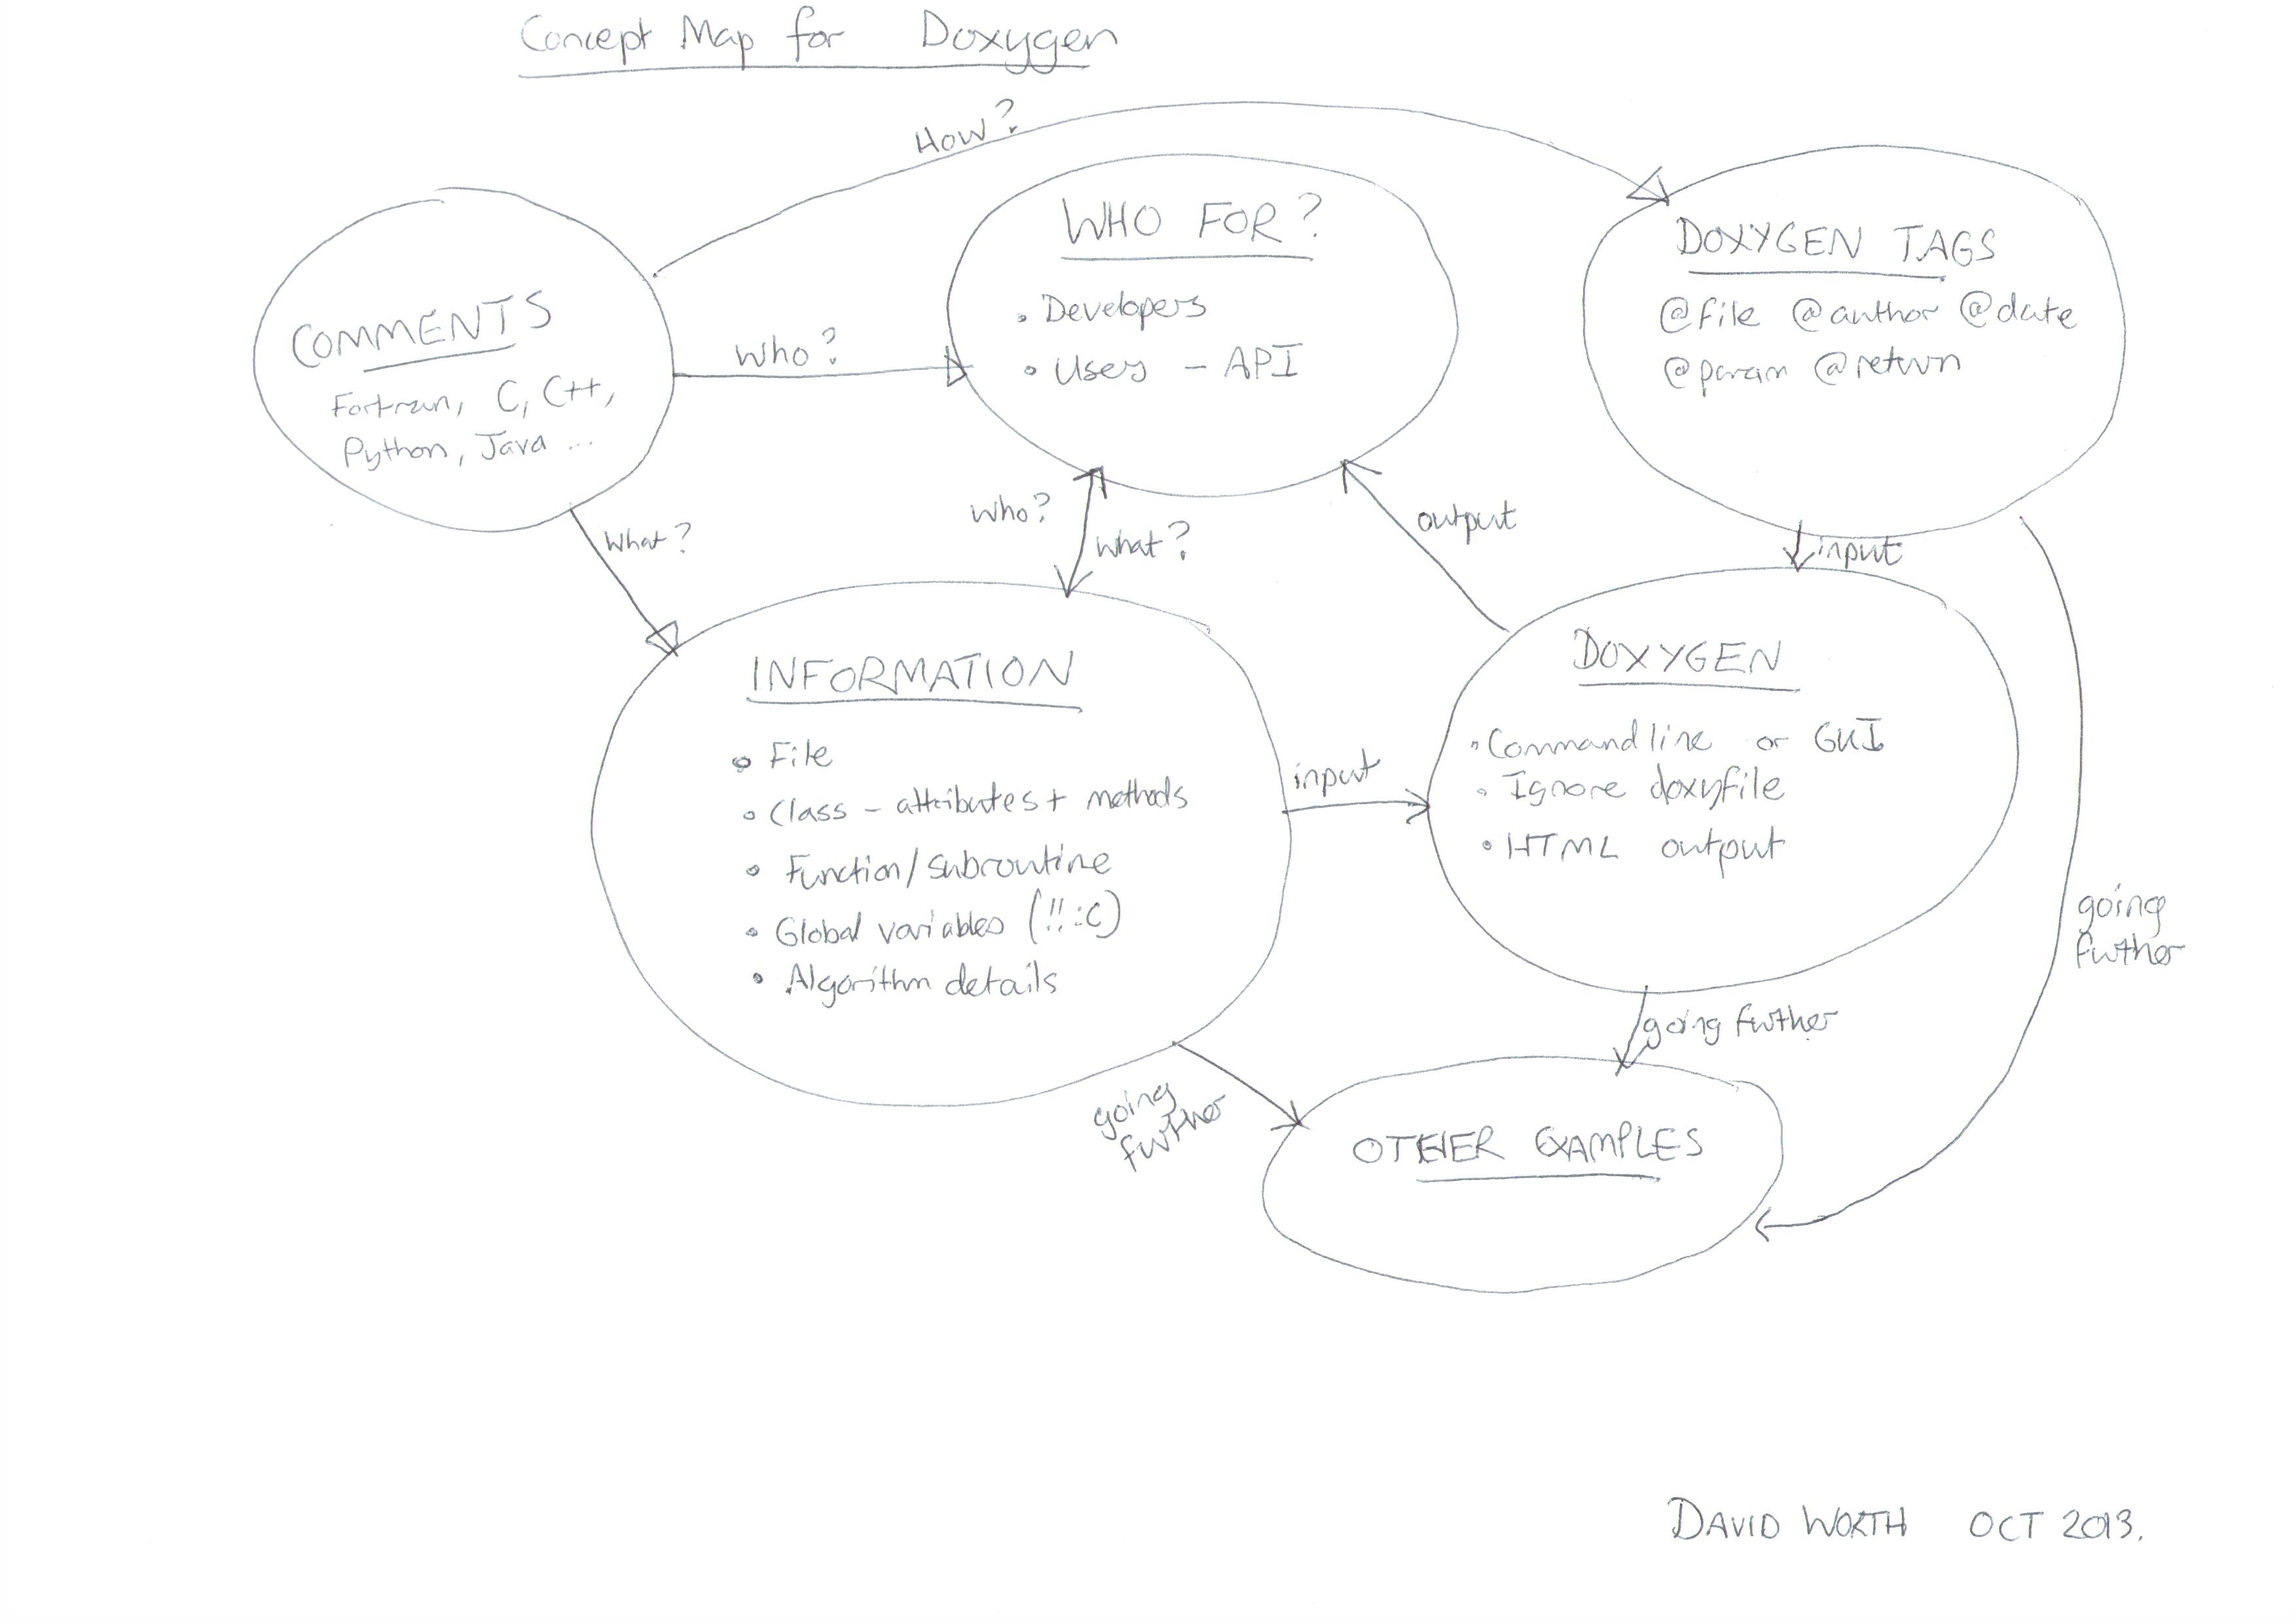 Concept Map for Doxygen
How?
WHO FOR?
• Developers
• Users - API
DOXYGEN TAGS
@file @author @date
@param @return
COMMENTS
Fortran, C, C++,
Python, Java ...
Who?
What?
Who?
What?
output
input
INFORMATION
• File
• Class - attributes + methods
• Function/subroutine
• Global variables (!! :C)
• Algorithm details
input
DOXYGEN
• Commandline or GUI
• Ignore doxyfile
• HTML output
going
further
going further
going
further
OTHER EXAMPLES
DAVID WORTH OCT 2013.